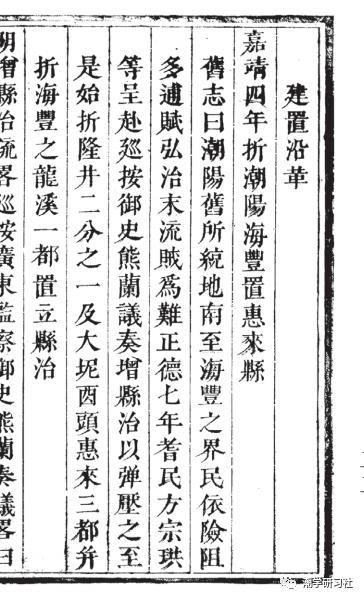 建置沿革
嘉靖四年折潮陽海豐置惠來縣
舊志曰潮陽舊所統地南至海豐之界民依險阻
多逋賦弘治末流賊爲難正德七年耆民方宗珙
等呈赴廵按御史熊蘭議奏增縣治以弹壓之至
是始折隆井二分之一及大坭酉頭惠來三都并
折海豐之龍溪一都置立縣治
明增縣治疏畧廵按廣東監察御史熊蘭奏議畧曰
潮学研习社